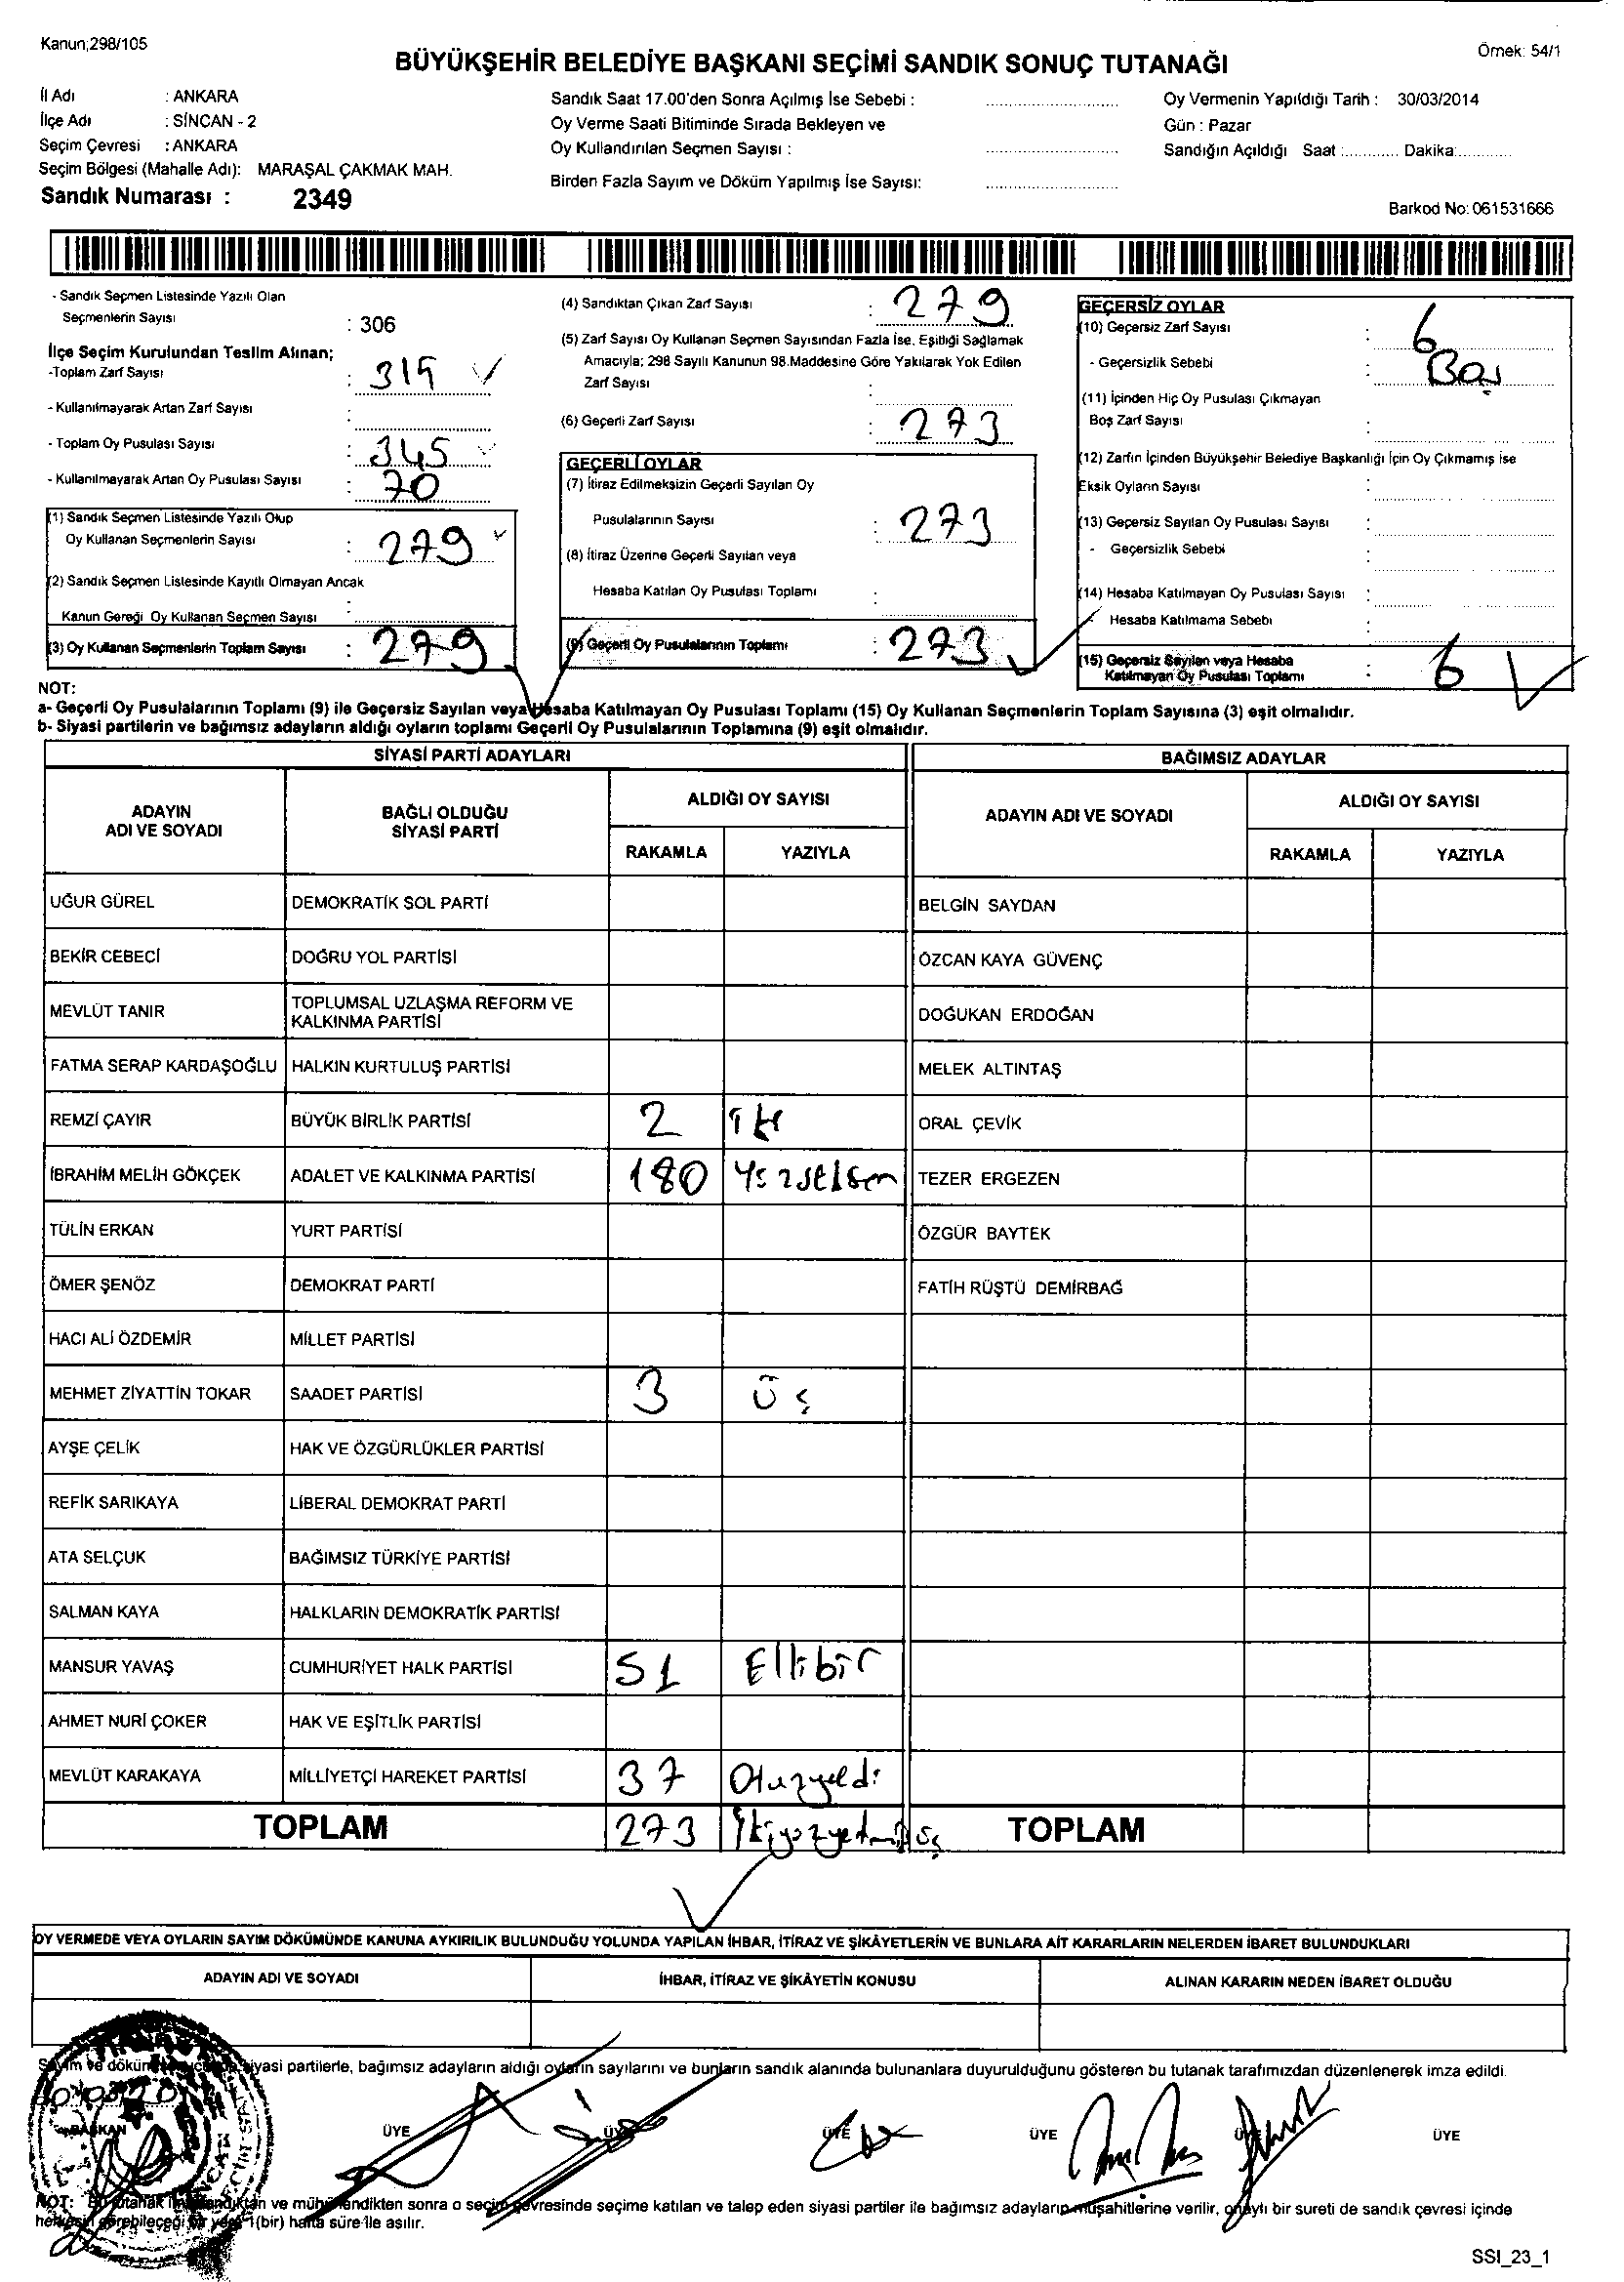 Kanun;298/105
Örnek: 54/1
BÜYÜKŞEHİR BELEDİYE BAŞKANI SEÇİMİ SANDIK SONUÇ TUTANAĞI
İl Adı : ANKARA
İlçe Adı : SİNCAN - 2
Seçim Çevresi : ANKARA
Seçim Bölgesi (Mahalle Adı): MARAŞAL ÇAKMAK MAH.
Sandık Numarası : 2349
Sandık Saat 17.00'den Sonra Açılmış İse Sebebi :
Oy Verme Saati Bitiminde Sırada Bekleyen ve
Oy Kullandırılan Seçmen Sayısı :
Birden Fazla Sayım ve Döküm Yapılmış İse Sayısı:
Oy Vermenin Yapıldığı Tarih : 30/03/2014
Gün : Pazar
Sandığın Açıldığı Saat :............ Dakika:............
Barkod No: 061531666
- Sandık Seçmen Listesinde Yazılı Olan
Seçmenlerin Sayısı : 306
İlçe Seçim Kurulundan Teslim Alınan;
-Toplam Zarf Sayısı : 319
- Kullanılmayarak Artan Zarf Sayısı :
- Toplam Oy Pusulası Sayısı : 345
- Kullanılmayarak Artan Oy Pusulası Sayısı : 70
(1) Sandık Seçmen Listesinde Yazılı Olup
Oy Kullanan Seçmenlerin Sayısı : 279
(2) Sandık Seçmen Listesinde Kayıtlı Olmayan Ancak
Kanun Gereği Oy Kullanan Seçmen Sayısı :
(3) Oy Kullanan Seçmenlerin Toplam Sayısı : 279
(4) Sandıktan Çıkan Zarf Sayısı : 279
(5) Zarf Sayısı Oy Kullanan Seçmen Sayısından Fazla İse, Eşitliği Sağlamak
Amacıyla; 298 Sayılı Kanunun 98.Maddesine Göre Yakılarak Yok Edilen
Zarf Sayısı :
(6) Geçerli Zarf Sayısı : 273
GEÇERLİ OYLAR
(7) İtiraz Edilmeksizin Geçerli Sayılan Oy
Pusulalarının Sayısı : 273
(8) İtiraz Üzerine Geçerli Sayılan veya
Hesaba Katılan Oy Pusulası Toplamı :
(9) Geçerli Oy Pusulalarının Toplamı : 273
GEÇERSİZ OYLAR
(10) Geçersiz Zarf Sayısı : 6
- Geçersizlik Sebebi : Boş
(11) İçinden Hiç Oy Pusulası Çıkmayan
Boş Zarf Sayısı :
(12) Zarfın İçinden Büyükşehir Belediye Başkanlığı İçin Oy Çıkmamış İse
Eksik Oyların Sayısı :
(13) Geçersiz Sayılan Oy Pusulası Sayısı :
- Geçersizlik Sebebi :
(14) Hesaba Katılmayan Oy Pusulası Sayısı :
Hesaba Katılmama Sebebi :
(15) Geçersiz Sayılan veya Hesaba
Katılmayan Oy Pusulası Toplamı : 6
NOT:
a- Geçerli Oy Pusulalarının Toplamı (9) ile Geçersiz Sayılan veya Hesaba Katılmayan Oy Pusulası Toplamı (15) Oy Kullanan Seçmenlerin Toplam Sayısına (3) eşit olmalıdır.
b- Siyasi partilerin ve bağımsız adayların aldığı oyların toplamı Geçerli Oy Pusulalarının Toplamına (9) eşit olmalıdır.
SİYASİ PARTİ ADAYLARI
ADAYIN ADI VE SOYADI
BAĞLI OLDUĞU SİYASİ PARTİ
ALDIĞI OY SAYISI
RAKAMLA YAZIYLA
UĞUR GÜREL DEMOKRATİK SOL PARTİ
BEKİR CEBECİ DOĞRU YOL PARTİSİ
MEVLÜT TANIR TOPLUMSAL UZLAŞMA REFORM VE
KALKINMA PARTİSİ
FATMA SERAP KARDAŞOĞLU HALKIN KURTULUŞ PARTİSİ
REMZİ ÇAYIR BÜYÜK BİRLİK PARTİSİ 2
İBRAHİM MELİH GÖKÇEK ADALET VE KALKINMA PARTİSİ 180
TÜLİN ERKAN YURT PARTİSİ
ÖMER ŞENÖZ DEMOKRAT PARTİ
HACI ALİ ÖZDEMİR MİLLET PARTİSİ
MEHMET ZİYATTİN TOKAR SAADET PARTİSİ 3 Üç
AYŞE ÇELİK HAK VE ÖZGÜRLÜKLER PARTİSİ
REFİK SARIKAYA LİBERAL DEMOKRAT PARTİ
ATA SELÇUK BAĞIMSIZ TÜRKİYE PARTİSİ
SALMAN KAYA HALKLARIN DEMOKRATİK PARTİSİ
MANSUR YAVAŞ CUMHURİYET HALK PARTİSİ 51 Ellibir
AHMET NURİ ÇOKER HAK VE EŞİTLİK PARTİSİ
MEVLÜT KARAKAYA MİLLİYETÇİ HAREKET PARTİSİ 37 Otuzyedi
TOPLAM 273
BAĞIMSIZ ADAYLAR
ADAYIN ADI VE SOYADI
ALDIĞI OY SAYISI
RAKAMLA YAZIYLA
BELGİN SAYDAN
ÖZCAN KAYA GÜVENÇ
DOĞUKAN ERDOĞAN
MELEK ALTINTAŞ
ORAL ÇEVİK
TEZER ERGEZEN
ÖZGÜR BAYTEK
FATİH RÜŞTÜ DEMİRBAĞ
TOPLAM
OY VERMEDE VEYA OYLARIN SAYIM DÖKÜMÜNDE KANUNA AYKIRILIK BULUNDUĞU YOLUNDA YAPILAN İHBAR, İTİRAZ VE ŞİKÂYETLERİN VE BUNLARA AİT KARARLARIN NELERDEN İBARET BULUNDUKLARI
ADAYIN ADI VE SOYADI
İHBAR, İTİRAZ VE ŞİKÂYETİN KONUSU
ALINAN KARARIN NEDEN İBARET OLDUĞU
Sayım ve döküm siyasi partilerle, bağımsız adayların aldığı oyların sayılarını ve bunların sandık alanında bulunanlara duyurulduğunu gösteren bu tutanak tarafımızdan düzenlenerek imza edildi.
BAŞKAN ÜYE ÜYE ÜYE ÜYE ÜYE ÜYE
NOT: Bu tutanak imzalandıktan ve mühürlendikten sonra o seçim çevresinde seçime katılan ve talep eden siyasi partiler ile bağımsız adayların müşahitlerine verilir, onaylı bir sureti de sandık çevresi içinde
herkesin görebileceği bir yere 1(bir) hafta süre ile asılır.
SSI_23_1